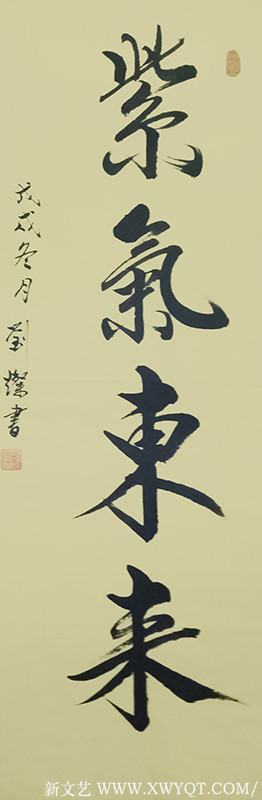 紫氣東来
戊戌冬月劉燦書
新文艺 WWW.XWYQT.COM/